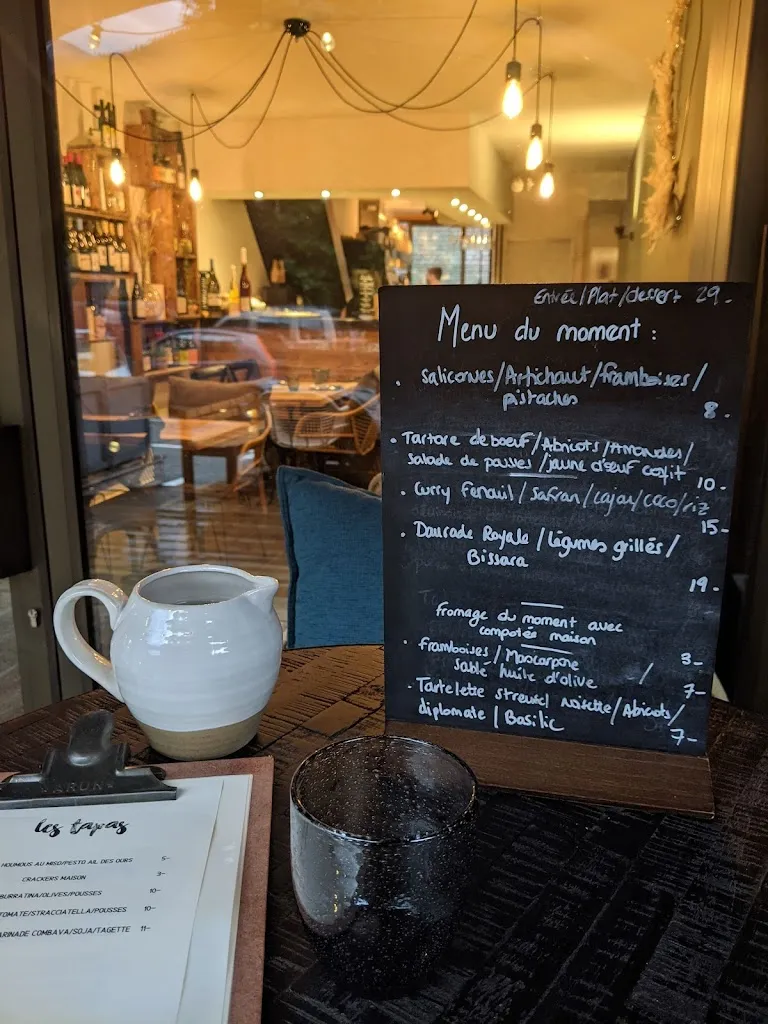 Entrée/Plat/dessert 29.-
Menu du moment :
. salicornes/Artichaut/framboises/
pistaches
8.-
. Tartare de boeuf/Abricots/Amandes/
salade de pousses/jaune d'oeuf confit
10-
. Curry Fenouil/safran/cajou/coco/riz
15-
. Daurade Royale/légumes grillés/
Bissara
19.-
fromage du moment avec
compotée maison
3-
. framboises/Mascarpone /
sablé huile d'olive
7-
. Tartelette streusel Noisette/Abricots/
diplomate/Basilic
7-
les tapas
HOUMOUS AU MISO/PESTO AIL DES OURS 5-
CRACKERS MAISON 3-
BURRATINA/OLIVES/POUSSES 10-
TOMATE/STRACCIATELLA/POUSSES 10-
MARINADE COMBAVA/SOJA/TAGETTE 11-